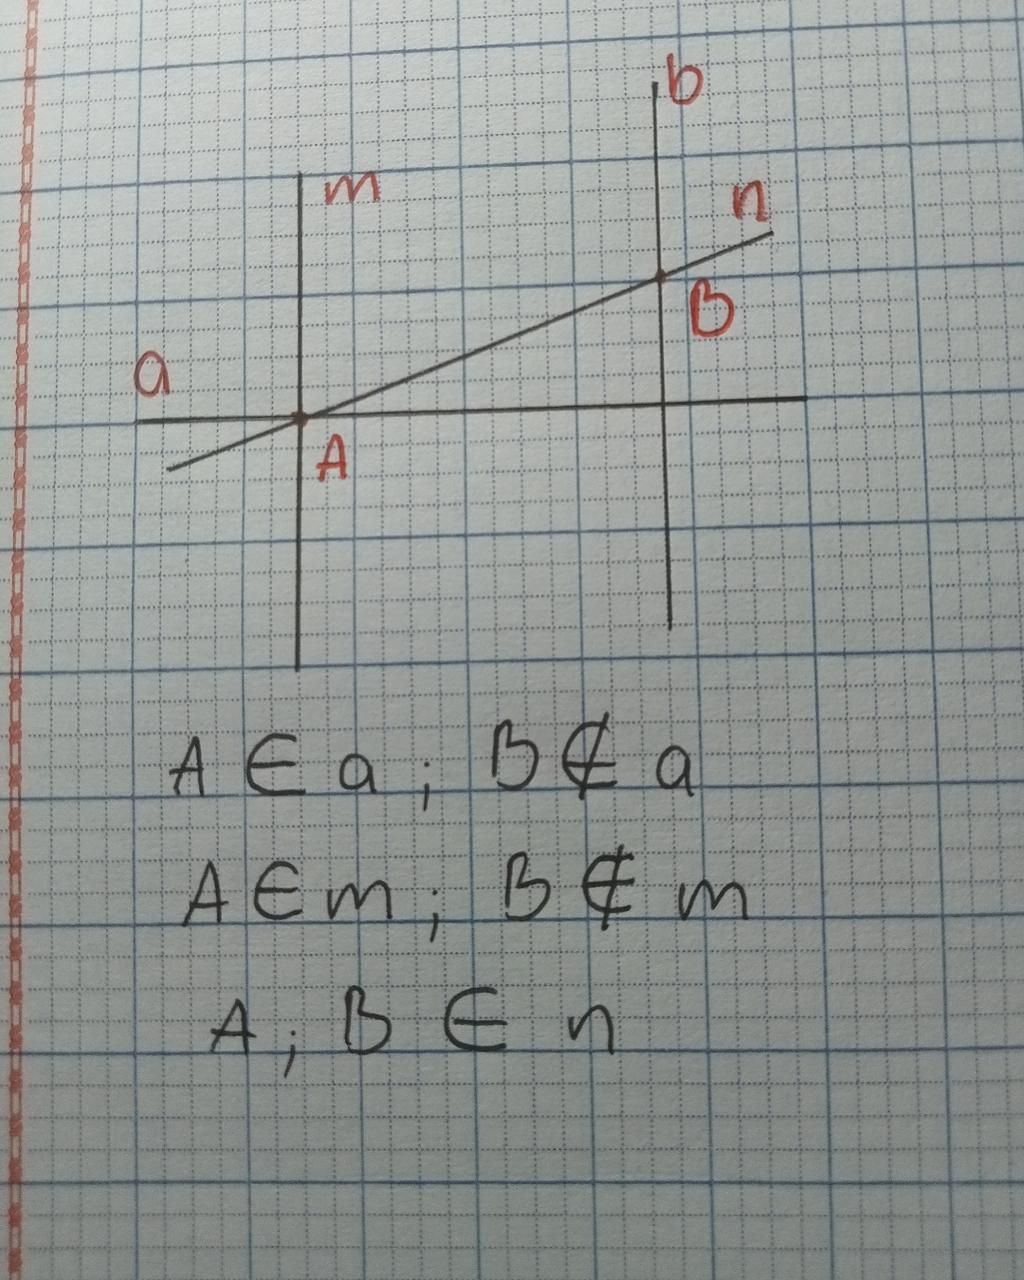 b
m
n
B
a
A
A ∈ a ; B ∉ a
A ∈ m ; B ∉ m
A ; B ∈ n